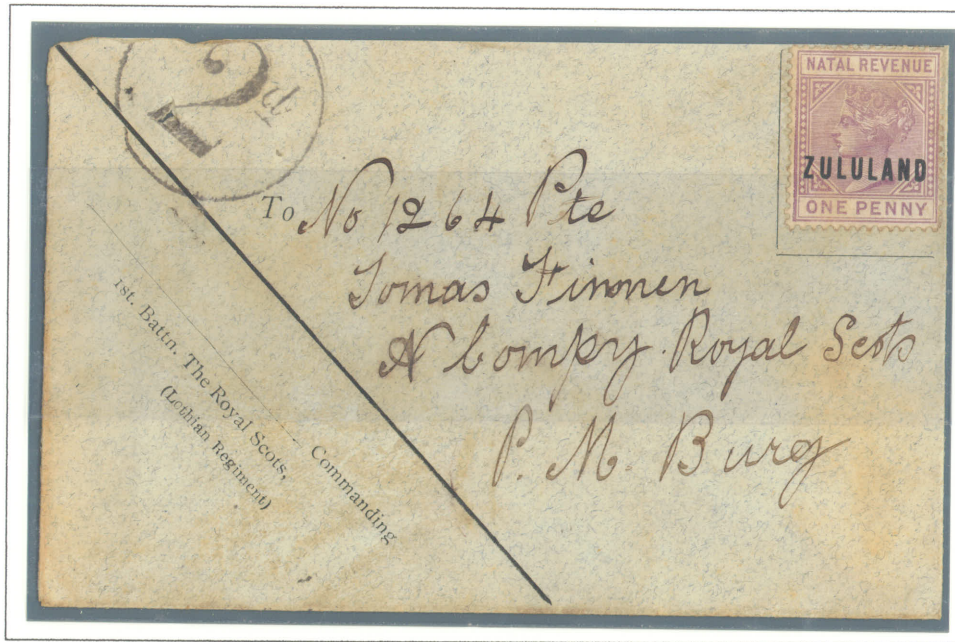 2d
NATAL REVENUE
ZULULAND
ONE PENNY
To No 1264 Pte
Tomas Finnen
A Compy. Royal Scots
P. M. Burg
Commanding
1st. Battn. The Royal Scots,
(Lothian Regiment)